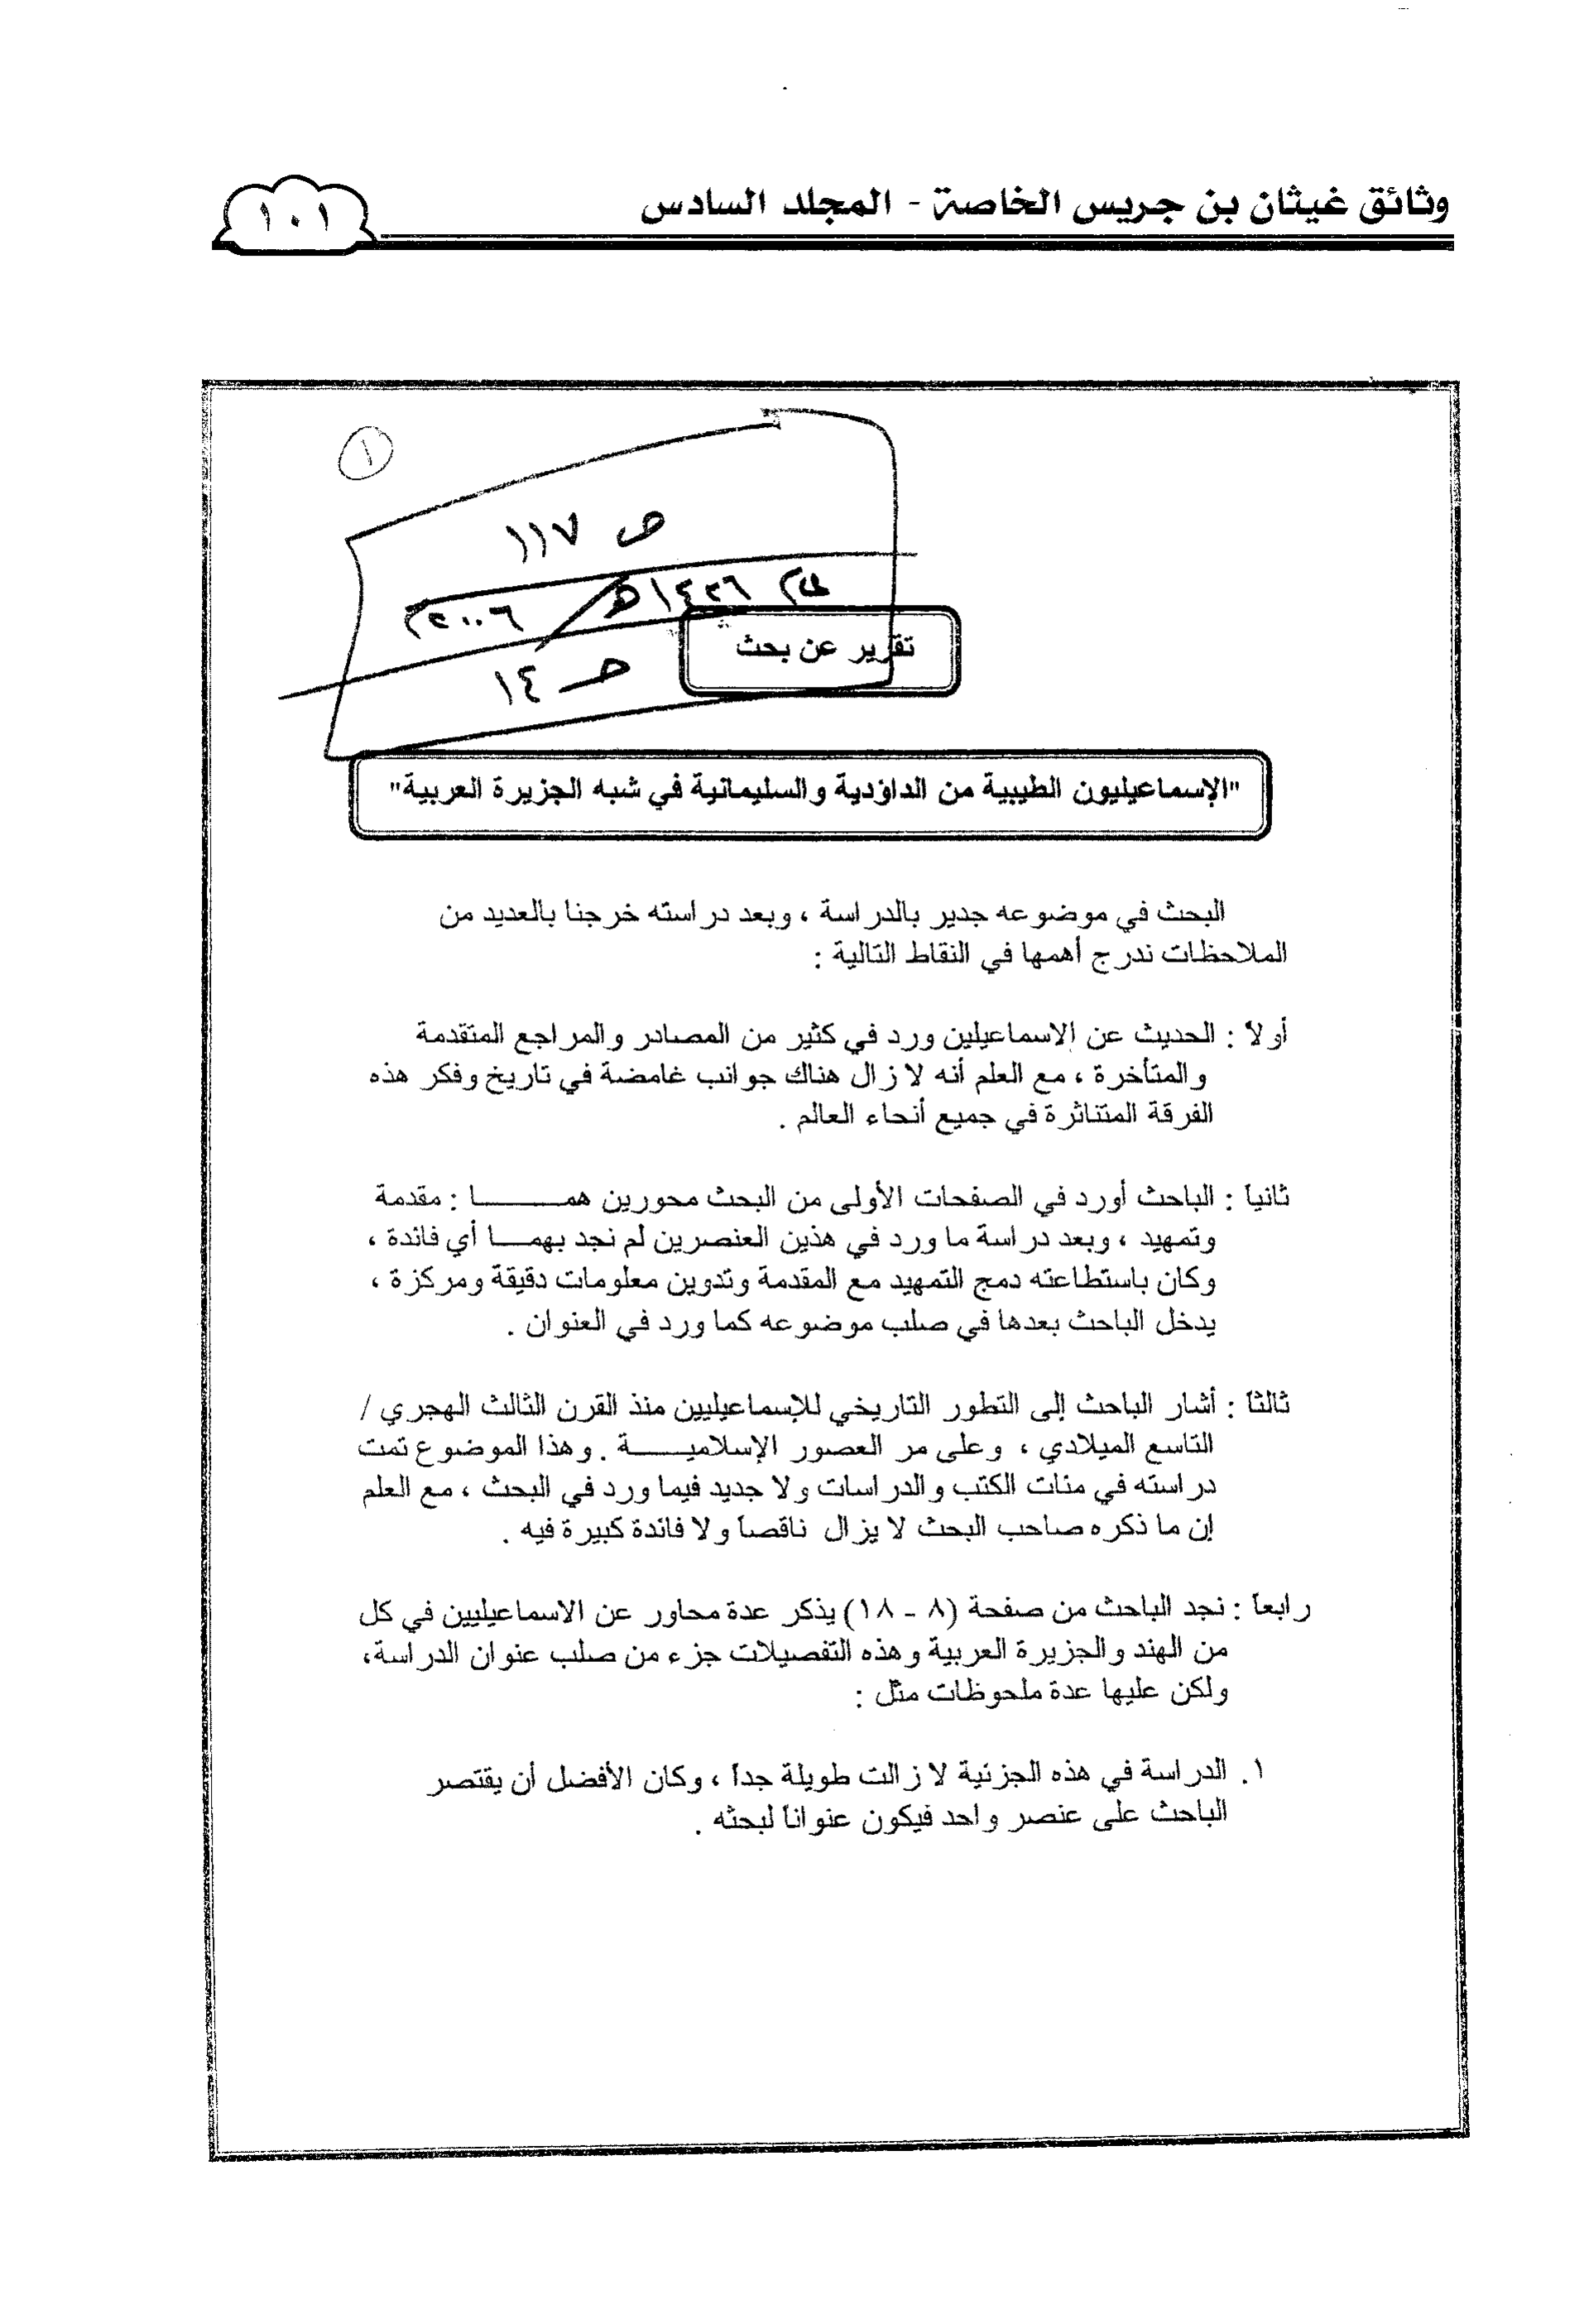 وثائق غيثان بن جريس الخاصة - المجلد السادس
١٠١
١
ص ١١٧
١٤٢٦هـ / ٢٠٠٦م
حـ ١٤
تقرير عن بحث
"الإسماعيليون الطيبية من الداؤدية والسليمانية في شبه الجزيرة العربية"
البحث في موضوعه جدير بالدراسة ، وبعد دراسته خرجنا بالعديد من
الملاحظات ندرج أهمها في النقاط التالية :
أولاً : الحديث عن الإسماعيلين ورد في كثير من المصادر والمراجع المتقدمة
والمتأخرة ، مع العلم أنه لا زال هناك جوانب غامضة في تاريخ وفكر هذه
الفرقة المتناثرة في جميع أنحاء العالم .
ثانياً : الباحث أورد في الصفحات الأولى من البحث محورين همـــــــا : مقدمة
وتمهيد ، وبعد دراسة ما ورد في هذين العنصرين لم نجد بهمـــا أي فائدة ،
وكان باستطاعته دمج التمهيد مع المقدمة وتدوين معلومات دقيقة ومركزة ،
يدخل الباحث بعدها في صلب موضوعه كما ورد في العنوان .
ثالثاً : أشار الباحث إلى التطور التاريخي للإسماعيليين منذ القرن الثالث الهجري /
التاسع الميلادي ، وعلى مر العصور الإسلاميــــــة . وهذا الموضوع تمت
دراسته في مئات الكتب والدراسات ولا جديد فيما ورد في البحث ، مع العلم
إن ما ذكره صاحب البحث لا يزال ناقصاً ولا فائدة كبيرة فيه .
رابعاً : نجد الباحث من صفحة (٨ - ١٨) يذكر عدة محاور عن الاسماعيليين في كل
من الهند والجزيرة العربية وهذه التفصيلات جزء من صلب عنوان الدراسة،
ولكن عليها عدة ملحوظات مثل :
١. الدراسة في هذه الجزئية لا زالت طويلة جداً ، وكان الأفضل أن يقتصر
الباحث على عنصر واحد فيكون عنواناً لبحثه .